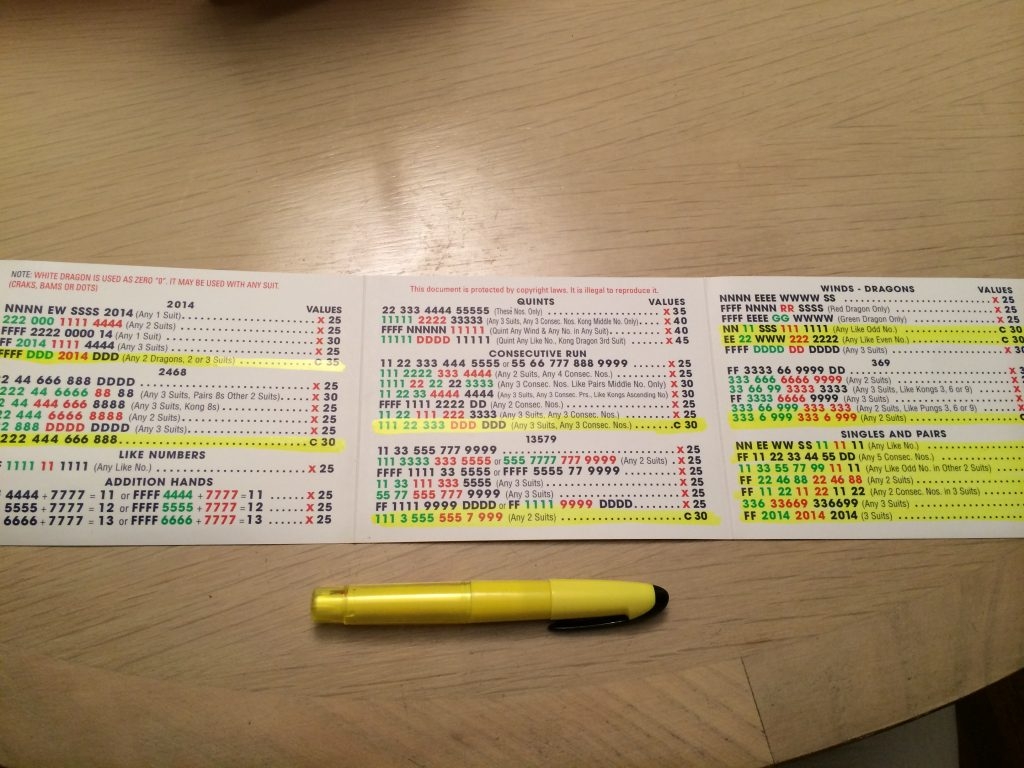 NOTE: WHITE DRAGON IS USED AS ZERO "0". IT MAY BE USED WITH ANY SUIT.
(CRAKS, BAMS OR DOTS)
2014 VALUES
NNNN EW SSSS 2014 (Any 1 Suit) X 25
222 000 1111 4444 (Any 2 Suits) X 25
FFFF 2222 0000 14 (Any 1 Suit) X 25
FF 2014 1111 4444 (Any 3 Suits) X 30
FFFF DDD 2014 DDD (Any 2 Dragons, 2 or 3 Suits) C 35
2468
22 44 666 888 DDDD X 25
222 44 6666 88 88 (Any 3 Suits, Pairs 8s Other 2 Suits) X 30
22 44 444 666 8888 (Any 3 Suits, Kong 8s) X 25
22 444 6666 8888 (Any 2 Suits) X 25
888 DDDD DDDD (Any 3 Suits) X 25
222 444 666 888 C 30
LIKE NUMBERS
1111 11 1111 (Any Like No.) X 25
ADDITION HANDS
4444 + 7777 = 11 or FFFF 4444 + 7777 = 11 X 25
5555 + 7777 = 12 or FFFF 5555 + 7777 = 12 X 25
6666 + 7777 = 13 or FFFF 6666 + 7777 = 13 X 25
This document is protected by copyright laws. It is illegal to reproduce it.
QUINTS VALUES
22 333 4444 55555 (These Nos. Only) X 35
11111 2222 33333 (Any 3 Suits, Any 3 Consec. Nos. Kong Middle No. Only) X 40
FFFF NNNNN 11111 (Quint Any Wind & Any No. in Any Suit) X 40
11111 DDDD 11111 (Quint Any Like No., Kong Dragon 3rd Suit) X 45
CONSECUTIVE RUN
11 22 333 444 5555 or 55 66 777 888 9999 X 25
111 2222 333 4444 (Any 2 Suits, Any 4 Consec. Nos.) X 25
1111 22 22 22 3333 (Any 3 Consec. Nos. Like Pairs Middle No. Only) X 30
11 22 33 4444 4444 (Any 3 Suits, Any 3 Consec. Prs., Like Kongs Ascending No) X 30
FFFF 1111 2222 DD (Any 2 Consec. Nos.) X 25
11 22 111 222 3333 (Any 3 Suits, Any 3 Consec. Nos.) X 25
111 22 333 DDD DDD (Any 3 Suits, Any 3 Consec. Nos.) C 30
13579
11 33 555 777 9999 X 25
111 3333 333 5555 or 555 7777 777 9999 (Any 2 Suits) X 25
FFFF 1111 33 5555 or FFFF 5555 77 9999 X 25
11 33 111 333 5555 (Any 3 Suits) X 25
55 77 555 777 9999 (Any 3 Suits) X 25
FF 1111 9999 DDDD or FF 1111 9999 DDDD X 25
111 3 555 555 7 999 (Any 2 Suits) C 30
WINDS - DRAGONS VALUES
NNNN EEEE WWWW SS X 25
FFFF NNNN RR SSSS (Red Dragon Only) X 25
FFFF EEEE GG WWWW (Green Dragon Only) X 25
NN 11 SSS 111 1111 (Any Like Odd No.) C 30
EE 22 WWW 222 2222 (Any Like Even No.) C 30
FFFF DDDD DD DDDD (Any 3 Suits)
369
FF 3333 66 9999 DD
333 666 6666 9999 (Any 2 Suits)
33 66 99 3333 3333 (Any 3 Suits, Like Kongs 3, 6 or 9)
FF 3333 6666 9999 (Any 3 Suits)
333 66 999 333 333 (Any 3 Suits, Like Pungs 3, 6 or 9)
333 6 999 333 6 999 (Any 2 Suits)
SINGLES AND PAIRS
NN EE WW SS 11 11 11 (Any Like No.)
FF 11 22 33 44 55 DD (Any 5 Consec. Nos.)
11 33 55 77 99 11 11 (Any Like Odd No. in Other 2 Suits)
FF 22 46 88 22 46 88 (Any 2 Suits)
FF 11 22 11 22 11 22 (Any 2 Consec. Nos. in 3 Suits)
336 33669 336699 (Any 3 Suits)
FF 2014 2014 2014 (3 Suits)